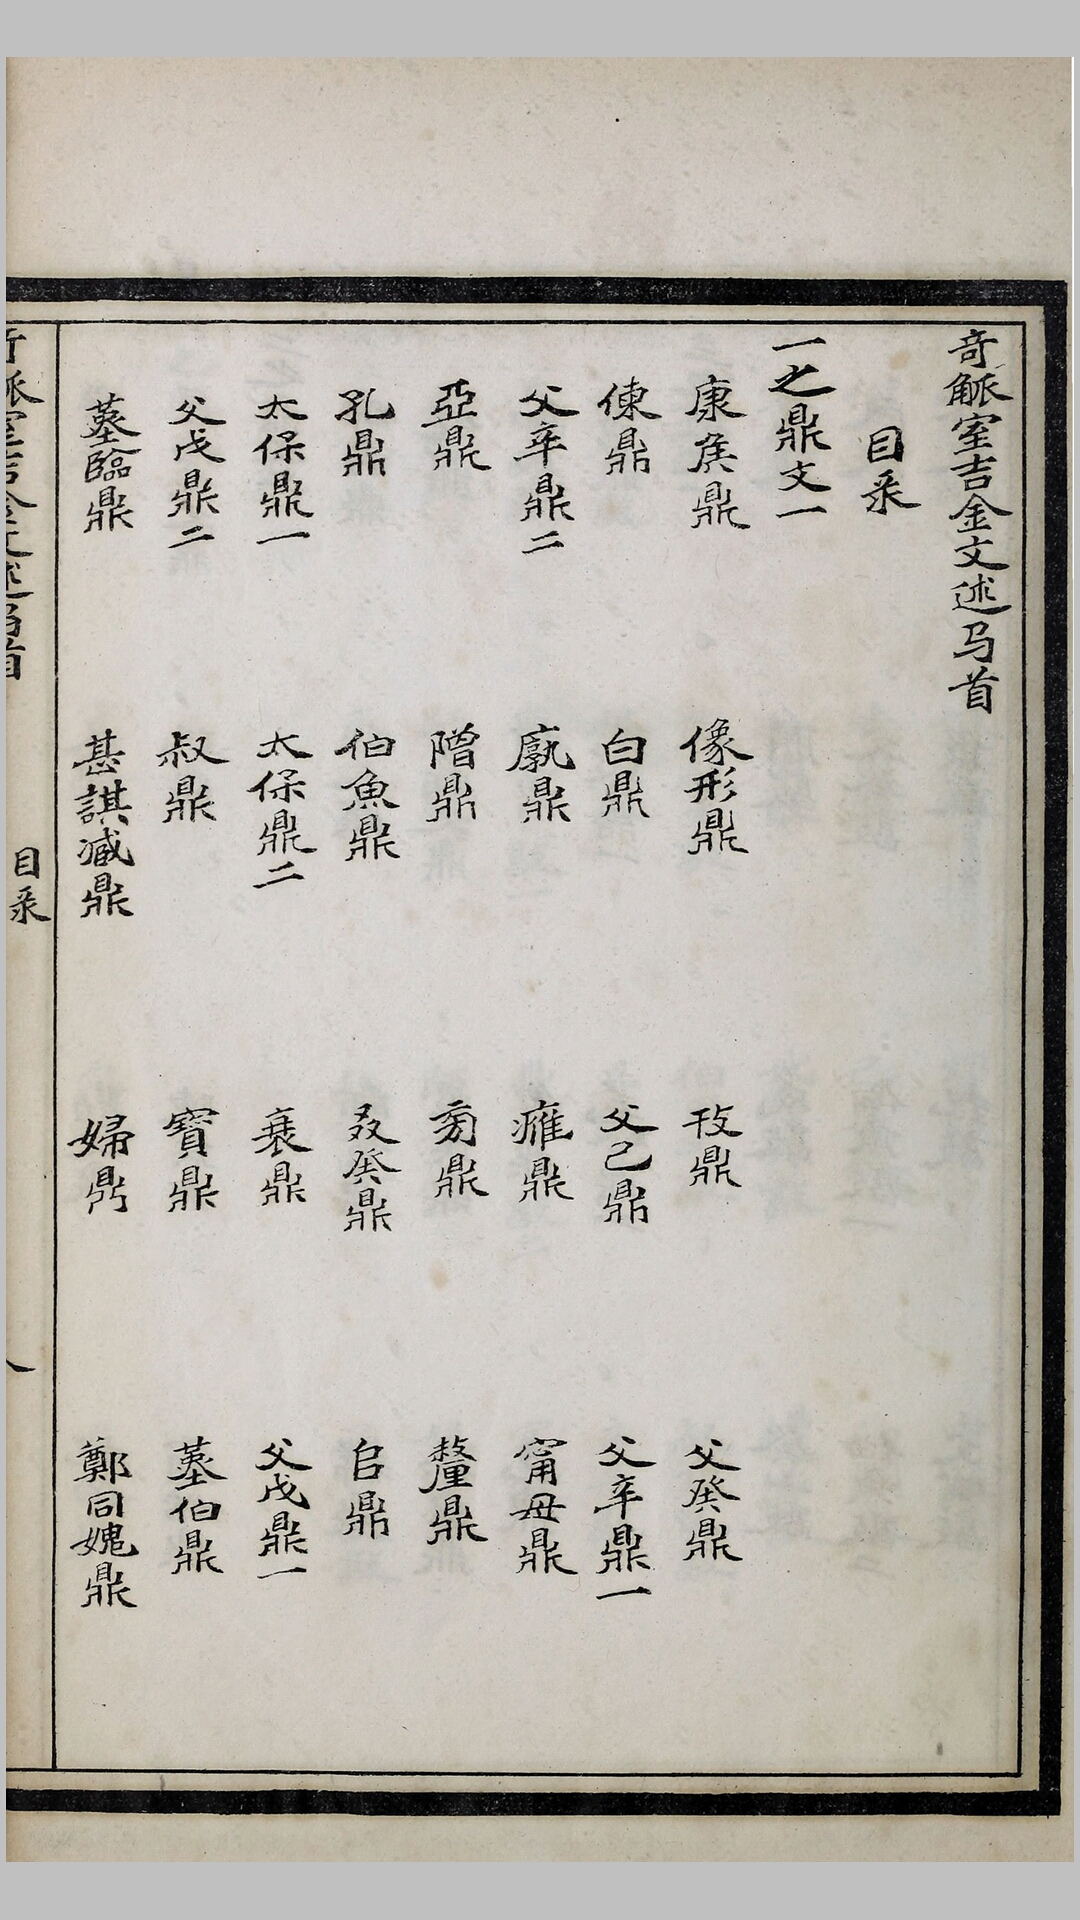 奇觚室吉金文述卷首
目录
一之鼎文一
康侯鼎 像形鼎 㺪鼎 父癸鼎
倲鼎 白鼎 父己鼎 父辛鼎一
父辛鼎二 鼎 癰鼎 甯母鼎
亞鼎 䧪鼎 鼎 釐鼎
孔鼎 伯魚鼎 癸鼎 㠯鼎
太保鼎一 太保鼎二 鼎 父戊鼎一
父戊鼎二 叔鼎 寶鼎 堇伯鼎
堇臨鼎 甚諆臧鼎 婦鼎 鄭同媿鼎
奇觚室吉金文述卷首
目录